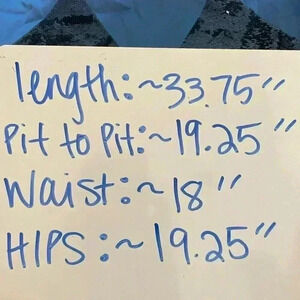 length: ~33.75"
Pit to Pit: ~19.25"
Waist: ~18"
HIPS: ~19.25"